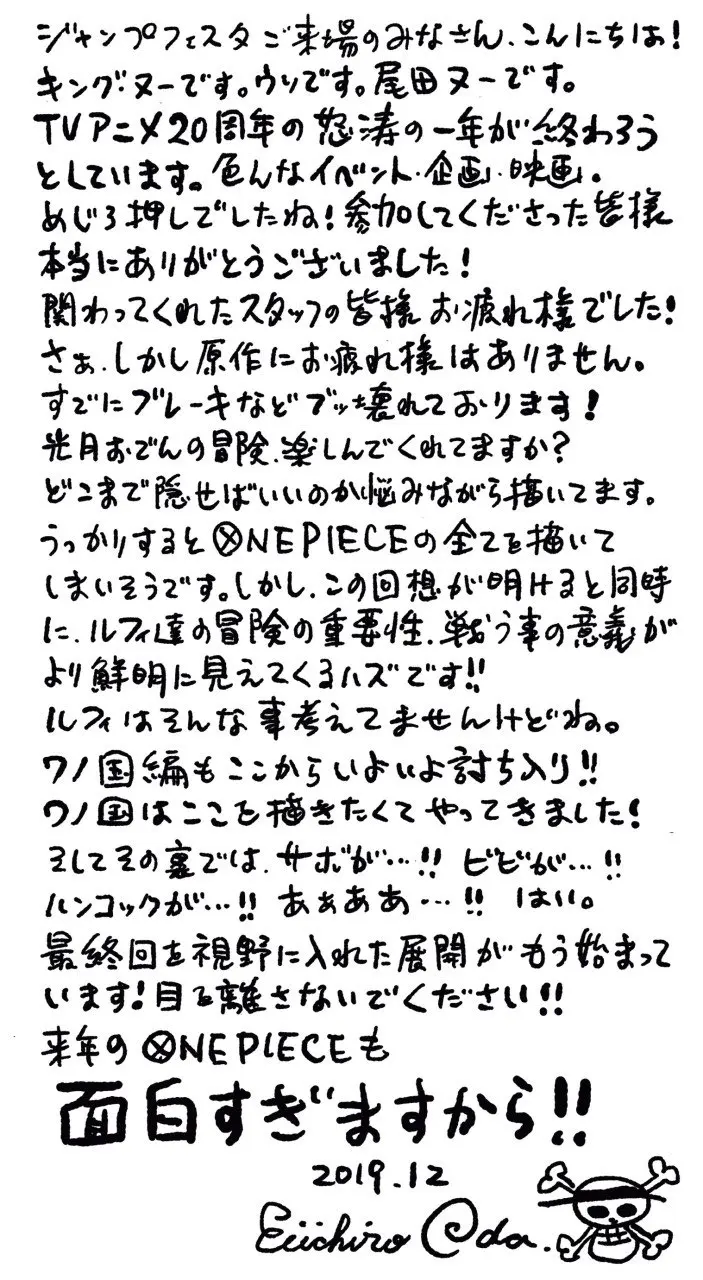 ジャンプフェスタご来場のみなさん、こんにちは!
キングヌーです。ウソです。尾田ヌーです。
TVアニメ20周年の怒涛の一年が終わろう
としています。色んなイベント・企画・映画。
めじろ押しでしたね!参加してくださった皆様
本当にありがとうございました!
関わってくれたスタッフの皆様お疲れ様でした!
さぁ、しかし原作にお疲れ様はありません。
すでにブレーキなどブッ壊れております!
光月おでんの冒険、楽しんでくれてますか?
どこまで隠せばいいのか悩みながら描いてます。
うっかりするとONE PIECEの全てを描いて
しまいそうです。しかし、この回想が明けると同時
に、ルフィ達の冒険の重要性、戦う事の意義が
より鮮明に見えてくるハズです!!
ルフィはそんな事考えてませんけどね。
ワノ国編もここからいよいよ討ち入り!!
ワノ国はここを描きたくてやってきました!
そしてその裏では、サボが…!! ビビが…!!
ハンコックが…!! あぁああ…!! はい。
最終回を視野に入れた展開がもう始まって
います!目を離さないでください!!
来年のONE PIECEも
面白すぎますから!!
2019.12
Eiichiro Oda.